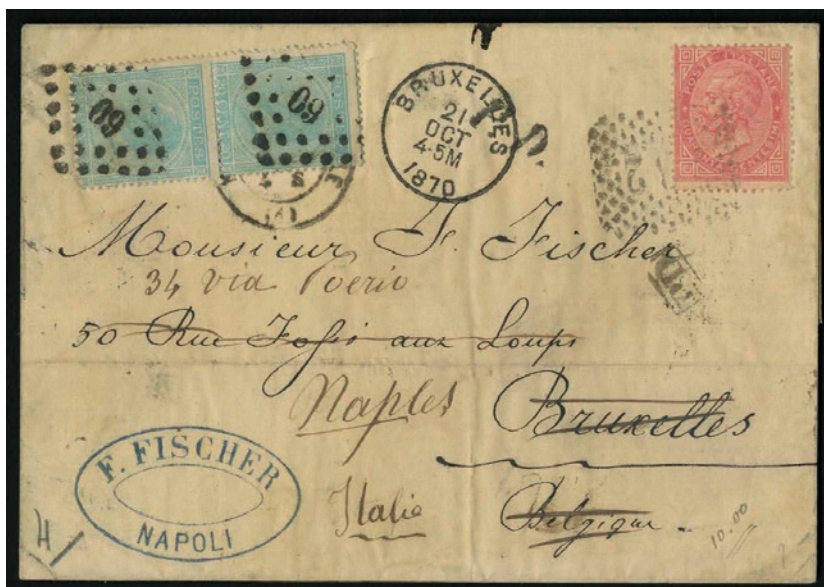 60
60
BRUXELLES
21
OCT
4-5M
1870
POSTE ITALIANE
Monsieur F. Fischer
34 via Poerio
50 Rue Fossé aux Loups
Naples
Bruxelles
Italie
Belgique
F. FISCHER
NAPOLI
10.00